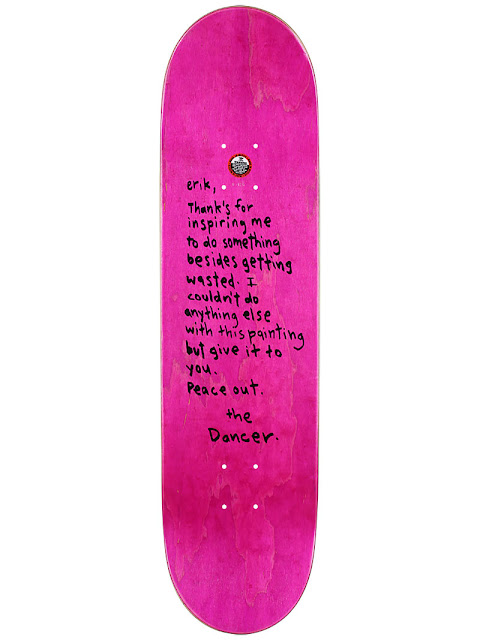 erik,
Thank's for
inspiring me
to do something
besides getting
wasted. I
couldn't do
anything else
with this painting
but give it to
you.
Peace out.
the
Dancer.